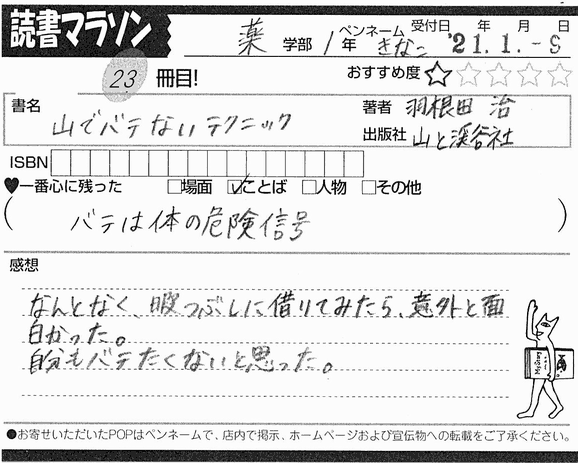 読書マラソン
薬 学部 1年 ペンネーム きなこ 受付日 年 月 日 '21.1.-9
23 冊目! おすすめ度 ☆☆☆☆☆
書名 山でバテないテクニック
著者 羽根田 治
出版社 山と溪谷社
ISBN
♥一番心に残った □場面 ☑ことば □人物 □その他
(バテは体の危険信号)
感想
なんとなく、暇つぶしに借りてみたら、意外と面
白かった。
自分もバテたくないと思った。
●お寄せいただいたPOPはペンネームで、店内で掲示、ホームページおよび宣伝物への転載をご了承ください。